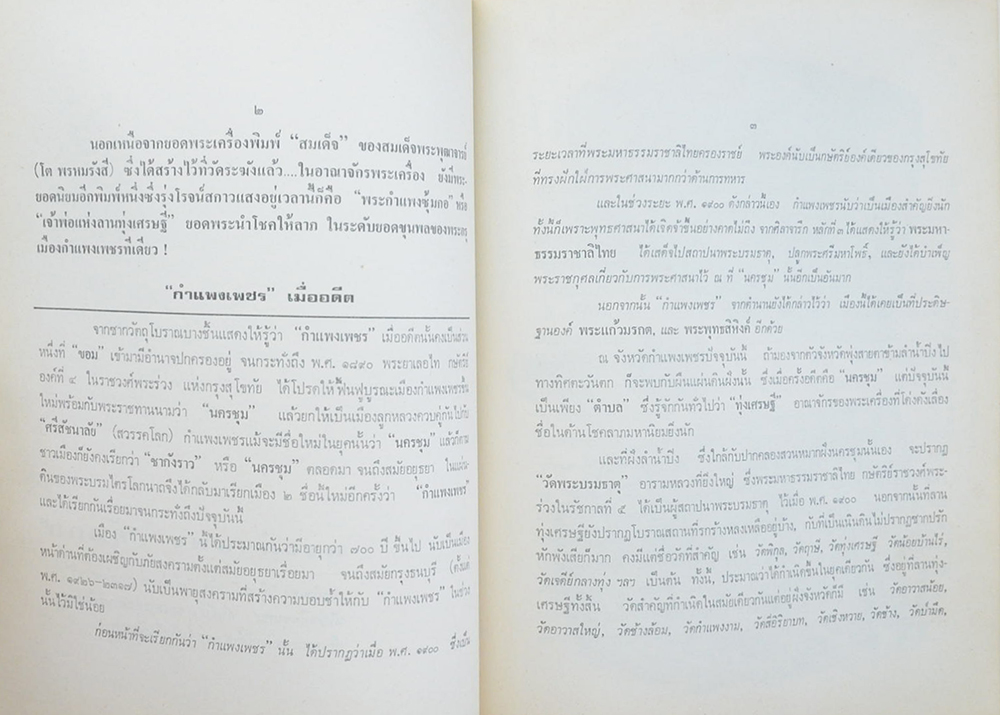 ๒
นอกเหนือจากยอดพระเครื่องพิมพ์ “สมเด็จ” ของสมเด็จพระพุฒาจารย์
(โต พรหมรังสี) ซึ่งได้สร้างไว้ที่วัดระฆังแล้ว....ในอาณาจักรพระเครื่อง ยังมีพระ-
ยอดนิยมอีกพิมพ์หนึ่งซึ่งรุ่งโรจน์สกาวแสงอยู่เวลานี้ก็คือ “พระกำแพงซุ้มกอ” หรือ
“เจ้าพ่อแห่งลานทุ่งเศรษฐี” ยอดพระนำโชคให้ลาภ ในระดับยอดขุนพลของพระกรุ
เมืองกำแพงเพชรทีเดียว !
“กำแพงเพชร” เมื่ออดีต
จากซากวัตถุโบราณบางชิ้นแสดงให้รู้ว่า “กำแพงเพชร” เมื่ออดีตนั้นคงเป็นส่วน
หนึ่งที่ “ขอม” เข้ามามีอำนาจปกครองอยู่ จนกระทั่งถึง พ.ศ. ๑๘๙๐ พระยาเลอไท กษัตริย์
องค์ที่ ๔ ในราชวงศ์พระร่วง แห่งกรุงสุโขทัย ได้โปรดให้ฟื้นฟูบูรณะเมืองกำแพงเพชรขึ้น
ใหม่พร้อมกับพระราชทานนามว่า “นครชุม” แล้วยกให้เป็นเมืองลูกหลวงควบคู่กันไปกับ
“ศรีสัชนาลัย” (สวรรคโลก) กำแพงเพชรแม้จะมีชื่อใหม่ในยุคนั้นว่า “นครชุม” แล้วก็ตาม
ชาวเมืองก็ยังคงเรียกว่า “ชากังราว” หรือ “นครชุม” ตลอดมา จนถึงสมัยอยุธยา ในแผ่น-
ดินของพระบรมไตรโลกนาถจึงได้กลับมาเรียกเมือง ๒ ชื่อนี้ใหม่อีกครั้งว่า “กำแพงเพชร”
และได้เรียกกันเรื่อยมาจนกระทั่งถึงปัจจุบันนี้
เมือง “กำแพงเพชร” นี้ได้ประมาณกันว่ามีอายุกว่า ๗๐๐ ปี ขึ้นไป นับเป็นเมือง
หน้าด่านที่ต้องเผชิญกับภัยสงครามตั้งแต่สมัยอยุธยาเรื่อยมา จนถึงสมัยกรุงธนบุรี (ตั้งแต่
พ.ศ. ๑๙๒๖-๒๓๑๘) นับเป็นพายุสงครามที่สร้างความบอบช้ำให้กับ “กำแพงเพชร” ในช่วง
นั้นไว้มิใช่น้อย
ก่อนหน้าที่จะเรียกกันว่า “กำแพงเพชร” นั้น ได้ปรากฏว่าเมื่อ พ.ศ. ๑๙๐๐ ซึ่งเป็น
๓
ระยะเวลาที่พระมหาธรรมราชาลิไทยครองราชย์ พระองค์นับเป็นกษัตริย์องค์เดียวของกรุงสุโขทัย
ที่ทรงฝักใฝ่การพระศาสนามากกว่าด้านการทหาร
และในช่วงระยะ พ.ศ. ๑๙๐๐ ดังกล่าวนี้เอง กำแพงเพชรนับว่าเป็นเมืองสำคัญยิ่งนัก
ทั้งนี้ก็เพราะพุทธศาสนาได้เจิดจ้าขึ้นอย่างคาดไม่ถึง จากศิลาจารึก หลักที่ ๓ ได้แสดงให้รู้ว่า พระมหา-
ธรรมราชาลิไทย ได้เสด็จไปสถาปนาพระบรมธาตุ, ปลูกพระศรีมหาโพธิ์, และยังได้บำเพ็ญ
พระราชกุศลเกี่ยวกับการพระศาสนาไว้ ณ ที่ “นครชุม” นั้นอีกเป็นอันมาก
นอกจากนั้น “กำแพงเพชร” จากตำนานยังได้กล่าวไว้ว่า เมืองนี้ได้เคยเป็นที่ประดิษ-
ฐานองค์ พระแก้วมรกต, และ พระพุทธสิหิงค์ อีกด้วย
ณ จังหวัดกำแพงเพชรปัจจุบันนี้ ถ้ามองจากตัวจังหวัดพุ่งสายตาข้ามลำน้ำปิงไป
ทางทิศตะวันตก ก็จะพบกับผืนแผ่นดินฝั่งนั้น ซึ่งเมื่อครั้งอดีตคือ “นครชุม” แต่ปัจจุบันนี้
เป็นเพียง “ตำบล” ซึ่งรู้จักกันทั่วไปว่า “ทุ่งเศรษฐี” อาณาจักรของพระเครื่องที่โด่งดังเลื่อง
ชื่อในด้านโชคลาภมหานิยมยิ่งนัก
และที่ฝั่งลำน้ำปิง ซึ่งใกล้กับปากคลองสวนหมากฝั่งนครชุมนั้นเอง จะปรากฏ
“วัดพระบรมธาตุ” อารามหลวงที่ยิ่งใหญ่ ซึ่งพระมหาธรรมราชาลิไทย กษัตริย์ราชวงศ์พระ-
ร่วงในรัชกาลที่ ๕ ได้เป็นผู้สถาปนาพระบรมธาตุ ไว้เมื่อ พ.ศ. ๑๙๐๐ นอกจากนั้นที่ลาน
ทุ่งเศรษฐียังปรากฏโบราณสถานที่รกร้างหลงเหลืออยู่บ้าง, กับที่เป็นเนินดินไม่ปรากฏซากปรัก
หักพังเสียก็มาก คงมีแต่ชื่อวัดที่สำคัญ เช่น วัดพิกุล, วัดฤาษี, วัดทุ่งเศรษฐี วัดน้อยบ้านไร่,
วัดเจดีย์กลางทุ่ง ฯลฯ เป็นต้น ทั้งนี้, ประมาณว่าได้กำเนิดขึ้นในยุคเดียวกัน ซึ่งอยู่ที่ลานทุ่ง-
เศรษฐีทั้งสิ้น วัดสำคัญที่กำเนิดในสมัยเดียวกันแต่อยู่ฝั่งจังหวัดก็มี เช่น วัดอาวาสน้อย,
วัดอาวาสใหญ่, วัดช้างล้อม, วัดกำแพงงาม, วัดสี่อิริยาบท, วัดเชิงหวาย, วัดช้าง, วัดป่ามืด,